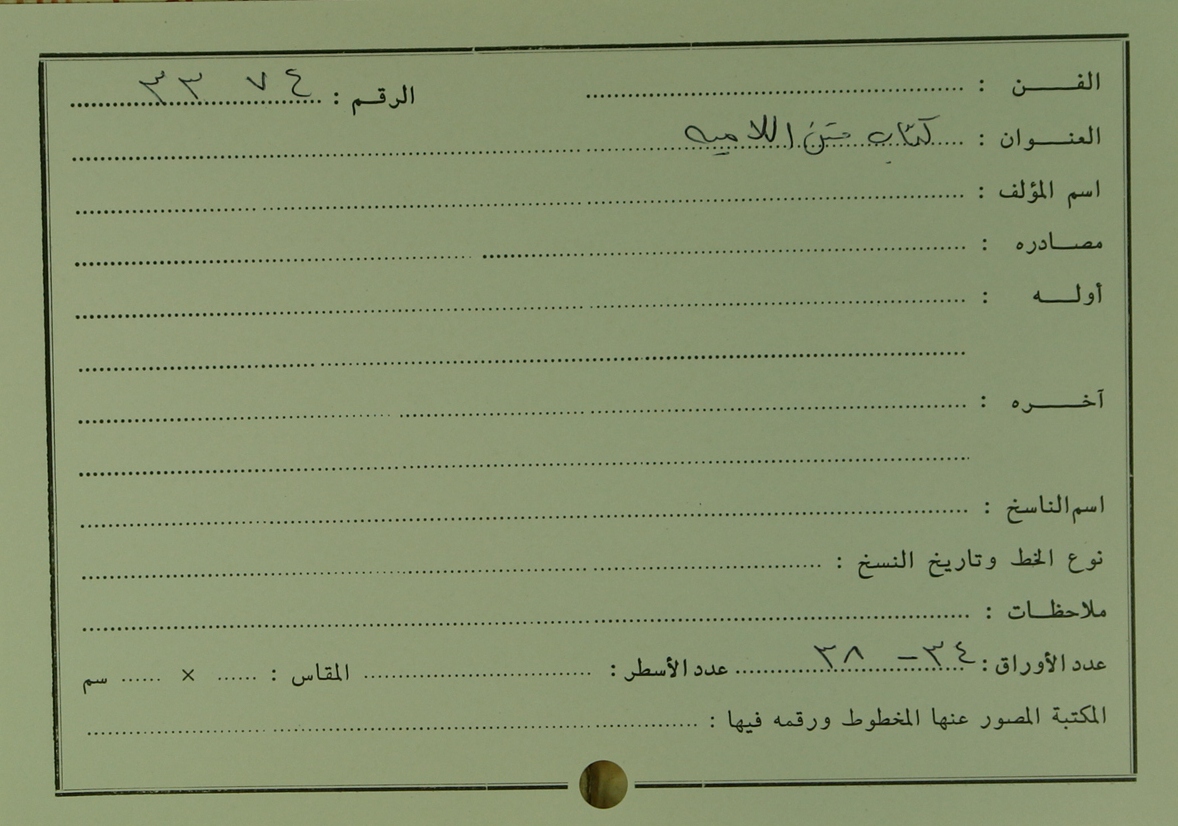 الفن : الرقم : ٣٣ ٧٤
العنوان : كتاب متن اللاميه
اسم المؤلف :
مصادره :
أوله :
آخره :
اسم الناسخ :
نوع الخط وتاريخ النسخ :
ملاحظات :
عدد الأوراق : ٣٤ – ٣٨ عدد الأسطر : المقاس : × سم
المكتبة المصور عنها المخطوط ورقمه فيها :